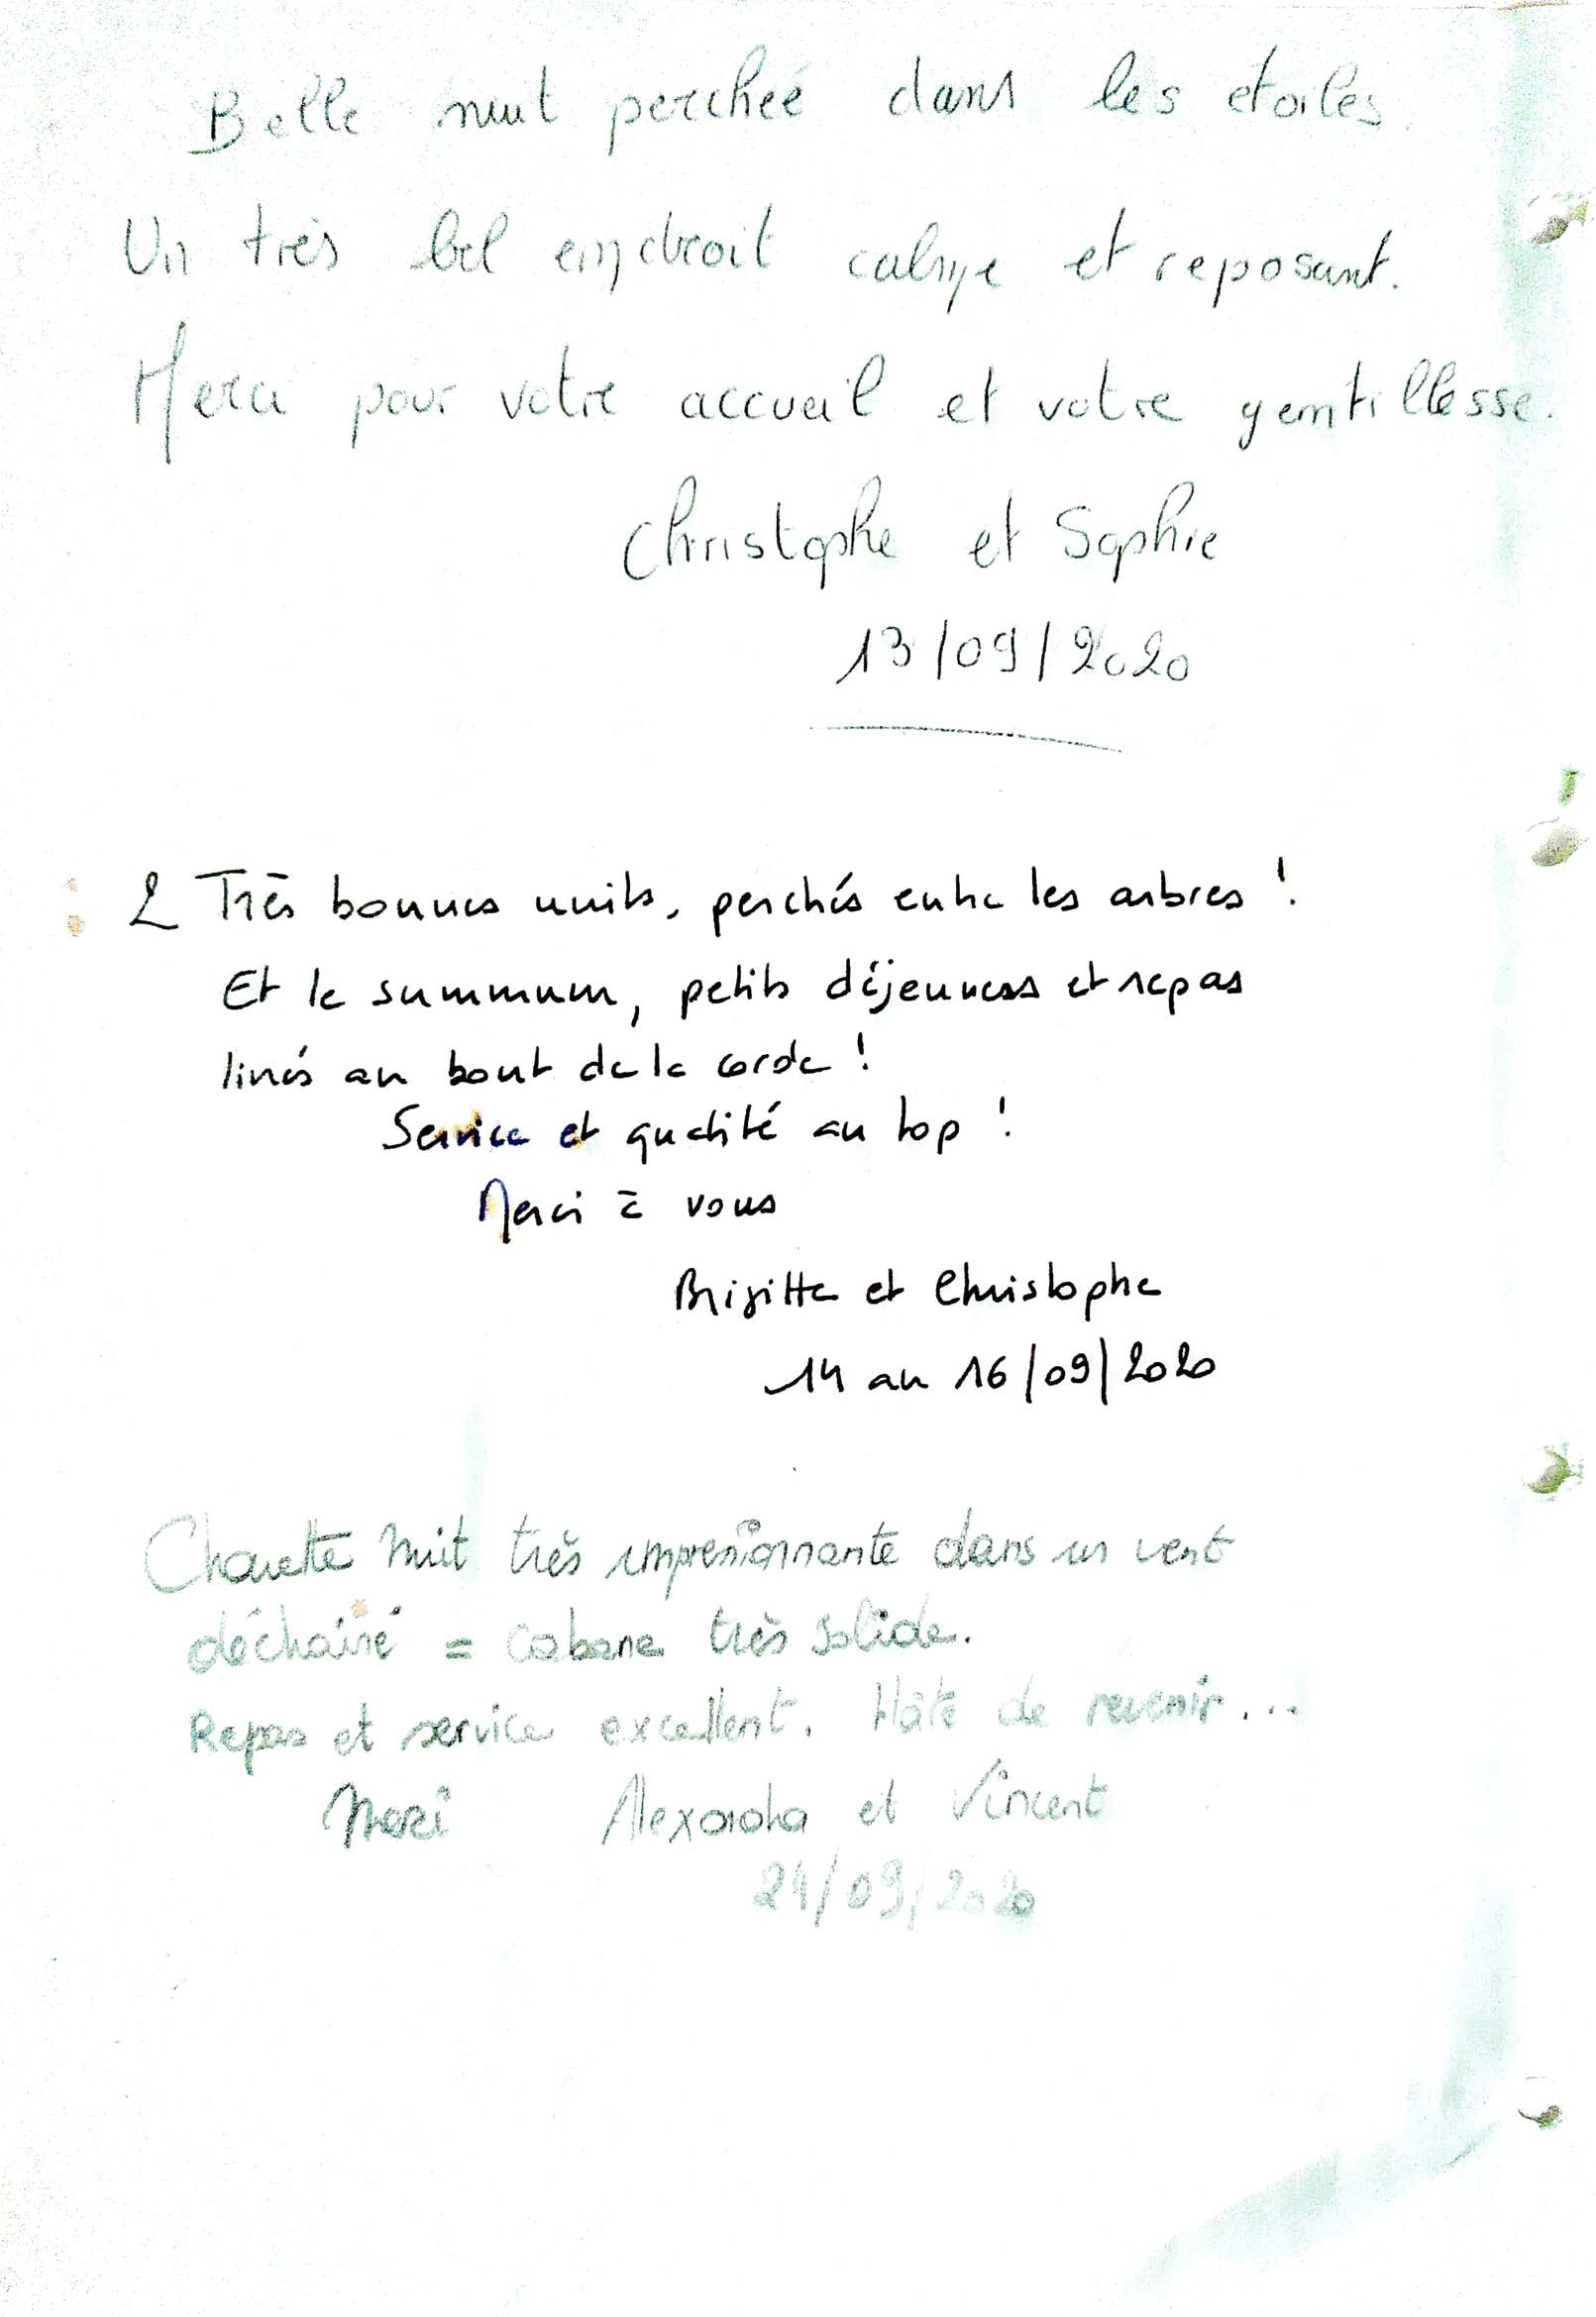 Belle nuit perchée dans les etoiles.
Un très bel endroit calme et reposant.
Merci pour votre accueil et votre gentillesse.
Christophe et Sophie
13/09/2020
2 Très bonnes nuits, perchés entre les arbres !
Et le summum, petits déjeuners et repas
livrés au bout de la corde !
Service et qualité au top !
Merci à vous
Brigitte et Christophe
14 au 16/09/2020
Chouette nuit très impressionnante dans un vent
déchaîné = cabane très solide.
Repas et service excellent. Hâte de revenir...
Merci Alexandra et Vincent
24/09/2020